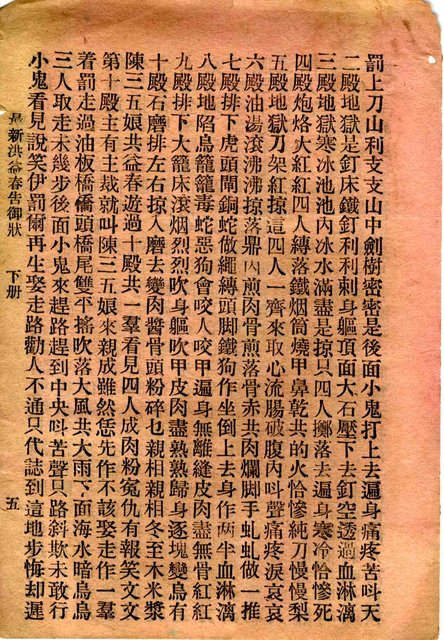 罰上刀山利支支山中劍樹密密是後面小鬼打上去遍身痛疼苦呌天
二殿地獄是釘床鐵釘利利刺身軀頂面大石壓下去釘空透過血淋漓
三殿地獄寒冰池池內冰水滿盡是掠只四人擲落去遍身寒冷恰慘死
四殿炮烙火紅紅四人縛落鐵烟筒燒甲鼻乾共的火恰慘純刀慢慢梨
五殿地獄刀架紅掠這四人一齊來取心流腸破腹內呌聲痛疼淚哀哀
六殿油湯滾沸沸掠落鼎內煎肉骨煎落骨赤共肉爛脚手虬虬做一堆
七殿排下虎頭閘銅蛇做繩縛頭脚鐵狗作坐倒上去身作兩半血淋漓
八殿地陷鳥籠籠毒蛇惡狗會咬人咬甲遍身無離縫皮肉盡無骨紅紅
九殿排下大籠床滾烟烈烈吹身軀吹甲皮肉盡熟熟歸身逐塊變鳥有
十殿石磨排左右掠入磨去變肉醬骨頭粉碎乜親相親相冬至木米漿
陳三五娘共益春遊過十殿共一羣看見四人成肉粉冤仇有報笑文文
第十殿主有主裁就叫陳三五娘來親成雖然恁先作不該娶走作一羣
着罰走過油板橋橋頭橋尾雙平搖吹落大風共大雨下面海水暗烏烏
三人取走未幾步後面小鬼來趕路趕到中央呌苦聲只路斜欺未敢行
小鬼看見說笑伊罰衕再生娶走路勸人不通只代誌到這地步悔却遲
新洪益春告御狀　下册　五